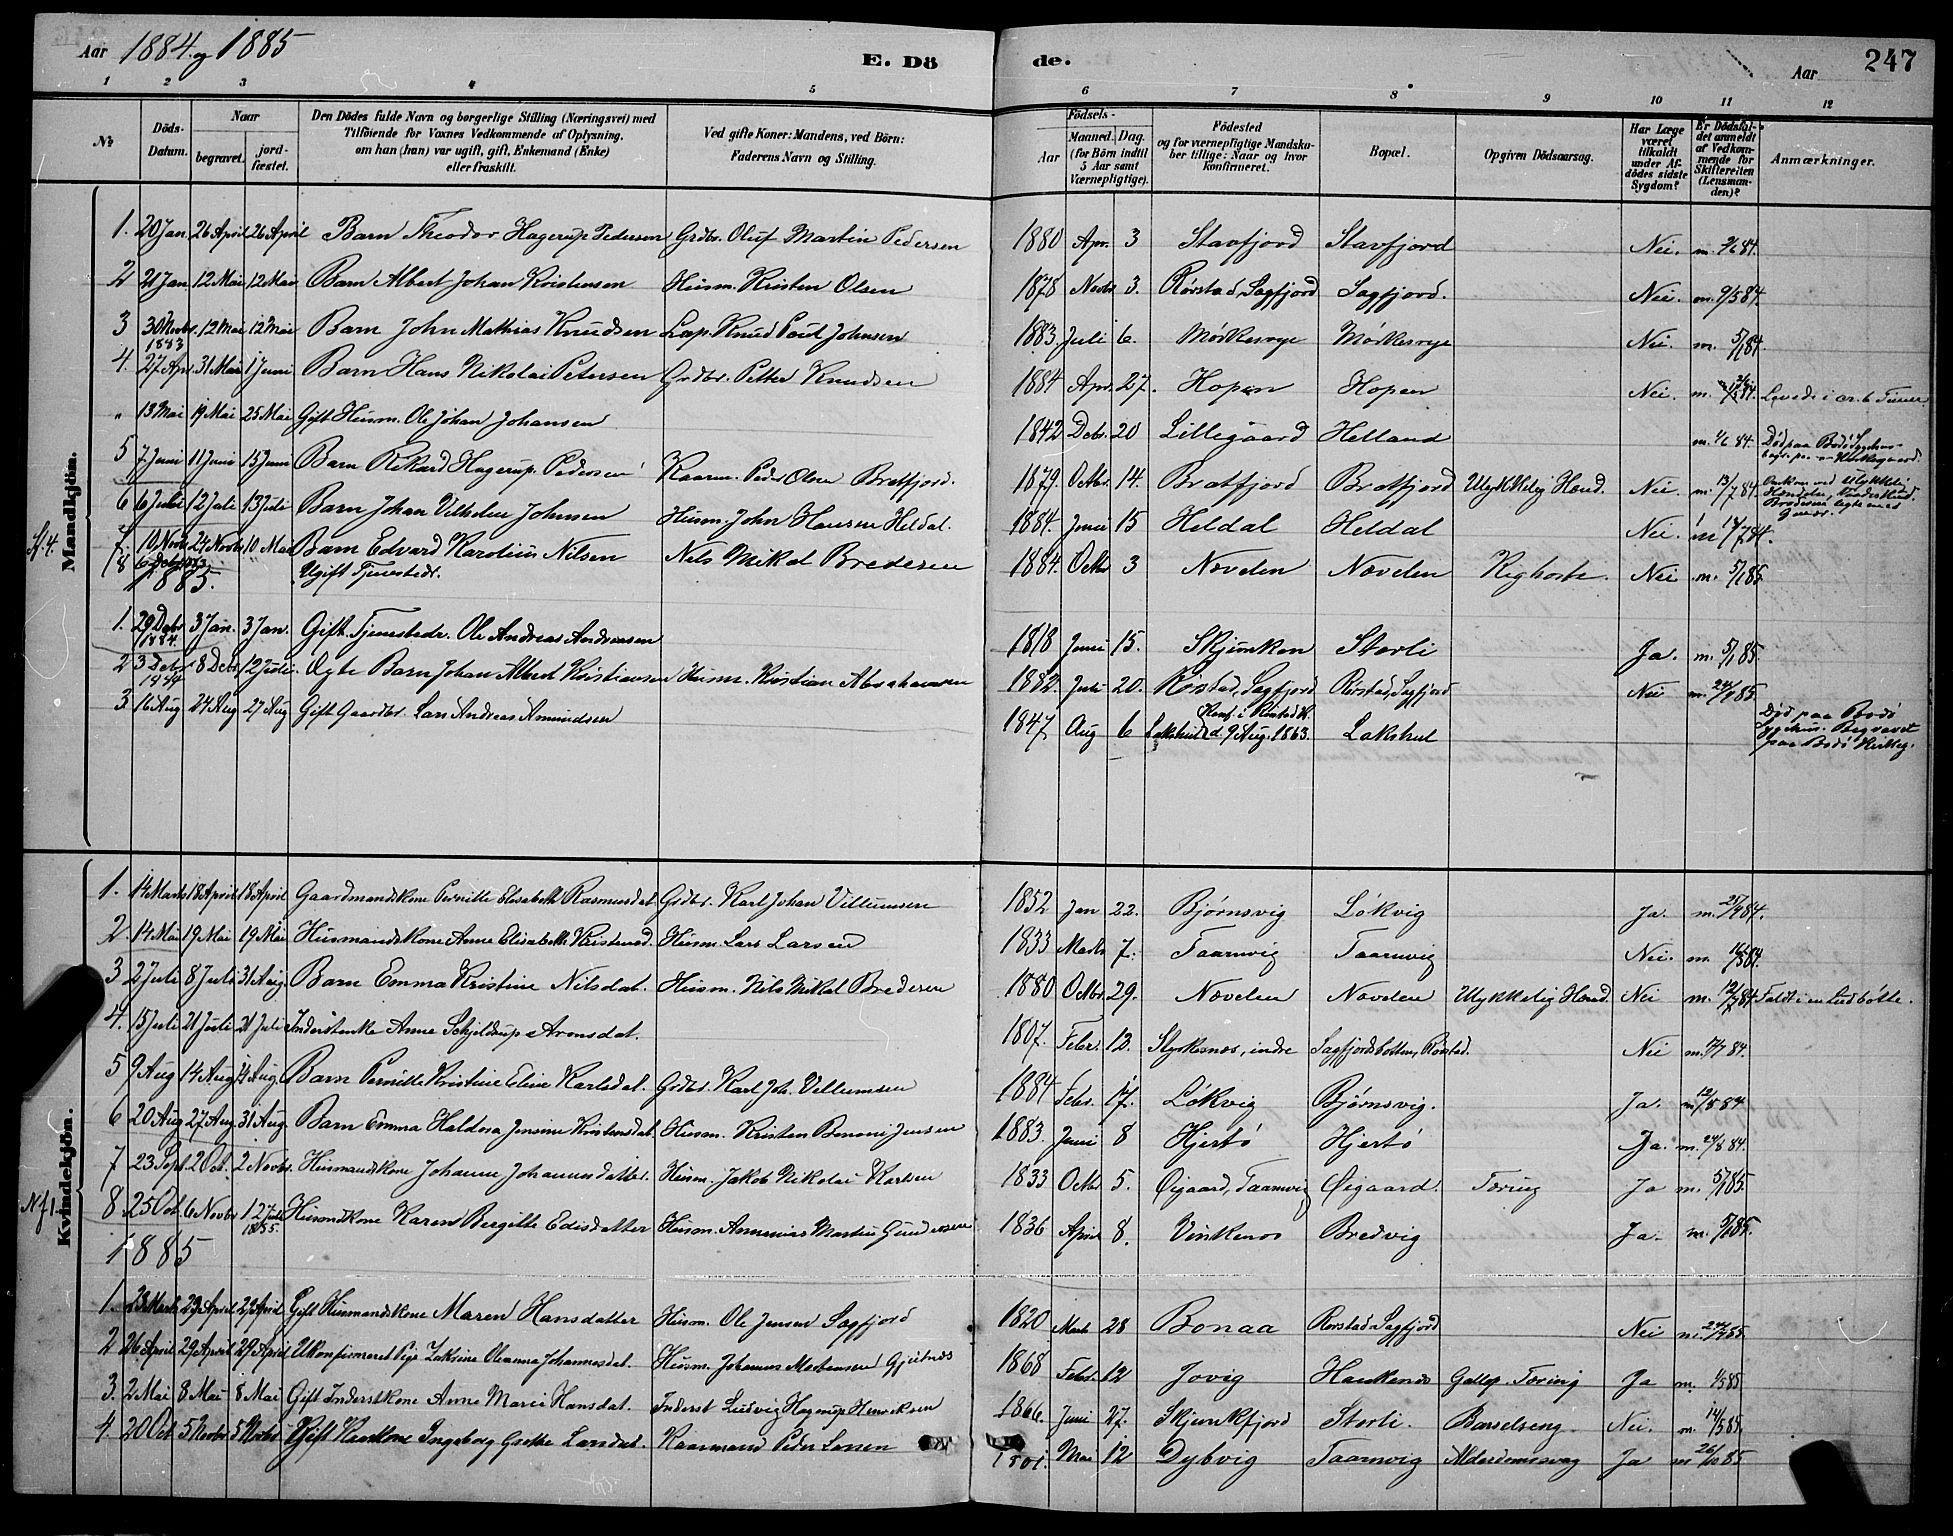 Aar 1884 og 1885 E. Dö de. Aar 247
1 2 3 4 5 6 7 8 9 10 11 12
No
Döds-Datum.
Naar
begravet.
jord-fæstet.
Den Dödes fulde Navn og borgerlige Stilling (Næringsvei) med
Tilföiende for Voxnes Vedkommende af Oplysning,
om han (hun) var ugift, gift, Enkemand (Enke)
eller fraskilt.
Ved gifte Koner: Mandens, ved Börn:
Faderens Navn og Stilling.
Födsels-
Aar
Maaned. Dag.
(for Börn indtil
5 Aar samt
Værnepligtige).
Födested
og for værnepligtige Mandska-
ber tillige: Naar og hvor
konfirmeret.
Bopæl.
Opgiven Dödsaarsag.
Har Læge
været
tilkaldt
under Af-
dödes sidste
Sygdom?
Er Dödsfal-
det anmeldt
af Vedkom-
mende for
Skifteretten
(Lensman-
den)?
Anmærkninger.
Mandkjön.
1. 20 Jan. 26 April 26 April Barn Theodor Hagerup Pedersen Grdbr. Oluf Martin Pedersen 1880 Apr. 3 Stavfjord Stavfjord Nei. m.
2 21 Jan. 12 Mai 12 Mai Barn Albert Johan Kristensen Husm. Kristen Olsen 1878 Novbr 3. Rörstad, Sagfjord Sagfjord. Nei. m. 9/5 84.
3 30 Novbr. 1883 12 Mai 12 Mai Barn John Mathias Knudsen Lap. Knud Poul Johnsen 1883 Juli 6. Mörkesvye Mörkesvye Nei. m.
4. 27 Apr. 31 Mai 1 Juni Barn Hans Nikolai Petersen Grdbr. Petter Knudsen 1884 Apr. 27. Hopen Hopen Nei. m. Levede i ca. 6 Timer
" 13 Mai 19 Mai 25 Mai Gift Husm. Ole Johan Johansen 1842 Debr. 20 Lillegaard Helland m. Död paa Bodö
5 7 Juni 11 Juni 15 Juni Barn Rikard Hagerup Pedersen Kaarm. Peder Olsen Bratfjord. 1879 Octbr. 14. Bratfjord Bratfjord Ulykkelig Hænd. Nei m. 13/7 84.
6 6 Juli 12 Juli 13 Juli Barn Johan Vilhelm Johnsen Husm. John Hansen Heldal. 1884 Juni 15 Heldal Heldal Nei. m.
7. 10 Novbr 24 Novbr 10 Mai Barn Edvard Karolius Nilsen Nels Mikal Bredesen 1884. Octbr 3 Nevelen Nevelen Kighoste. Nei m. 5/1 85.
8 Ugift Tjenestedr.
1885.
1. 29 Debr 1884. 3 Jan. 3 Jan. Gift Tjenestedr. Ole Andreas Andreasen 1818 Juni 15. Skjunken Storli Ja. m. 5/1 85.
2 3 Debr 8 Debr 12 Juli. Ægte Barn Johan Albert Kristiansen Husm. Kristian Abrahamsen 1882. Juli 20. Rörstad, Sagfjord Rörstad, Sagfjord Nei m.
3 16 Aug 24 Aug 27 Aug Gift Gaardbr. Lars Andreas Amundsen 1847 Aug 6 Lakshul Konf. i Rörstad K. d. 9 Aug. 1863. Lakshul Död paa Bodö
Sygehus. Begravet
paa Bodö Kirkeg.
Kvindekjön.
1. 14 Marts 18 April 18 April Gaardmandskone Pernille Elisabeth Rasmusdat. Grdbr. Karl Johan Villumsen 1852 Jan 22. Björnsvig Lökvig Ja. m.
2 14 Mai 19 Mai 19 Mai Husmandskone Anne Elisabeth Kristensd. Husm. Lars Larsen 1833 Marts 7. Taarnvig Taarnvig Nei. m.
3 2 Juli 8 Juli 31 Aug. Barn Emma Kristine Nilsdat. Husm. Nils Mikal Bredesen 1880 Octbr. 29. Nevelen Nevelen Ulykkelig Hænd. Nei m. Faldt i en Ludbötte.
4. 15 Juli 21 Juli 21 Juli Inderstenke Anne Schjeldrup Aronsdat. 1807. Febr. 12. Styrkesnes, indre Sagfjordbotten, Rörstad. Nei m.
5 9 Aug 14 Aug 14 Aug. Barn Pernille Kristine Eline Karlsdat. Grdbr. Karl Joh. Villumsen 1884 Febr. 17. Lökvig Björnsvig. Ja. m. 12/8 84
6 20 Aug 27 Aug 31 Aug. Barn Emma Haldora Jensine Kristensdat. Husm. Kristen Benoni Jensen 1883. Juni 8 Hjertö Hjertö Ja. m. 24/8 84.
7 23 Sept. 2 Oct. 2 Novbr. Husmandskone Johanne Johannesdatter. Husm. Jakob Nikolai Karlsen 1833 Octbr 5. Øigaard, Taarnvig Øigaard. Tæring Ja m. 5/1 85.
8 25 Oct. 6 Novbr 12 Juli 1885. Husmdkone Karen Bergitte Edisdatter Husm. Ammenius Martin Gundersen 1836 April 8. Vinkenes Bredvig Ja. m. 5/1 85.
1885
1. 23 Marts 29 April 29 April Gift Husmandskone Maren Hansdatter Husm. Ole Jensen Sagfjord 1820 Marts 28 Bonaa Rörstad Sagfjord Nei m.
2 26 April 29 April 29 April Ukonfirmeret Pige Zakrine Oleanna Johannesdat. Husm. Johannes Mortensen Gjeitnes 1868 Febr. 12 Jovig Haukenes Gallop. Tæring Ja m.
3. 2 Mai 8 Mai 8 Mai Gift Inderstkone Anne Marie Hansdat. Inderst Ludvig Hagerup Henriksen 1866. Juni 27. Skjunkfjord Storli. Barselseng. Nei. m. 14/5 85.
4. 20 Oct 5 Novbr 5 Novbr Gift Kaarkone Ingeborg Grethe Larsdat. Kaarmand Peder Larsen 1801. Mai 12 Dybvig Taarnvig Alderdomssvag Ja m 26/10 85